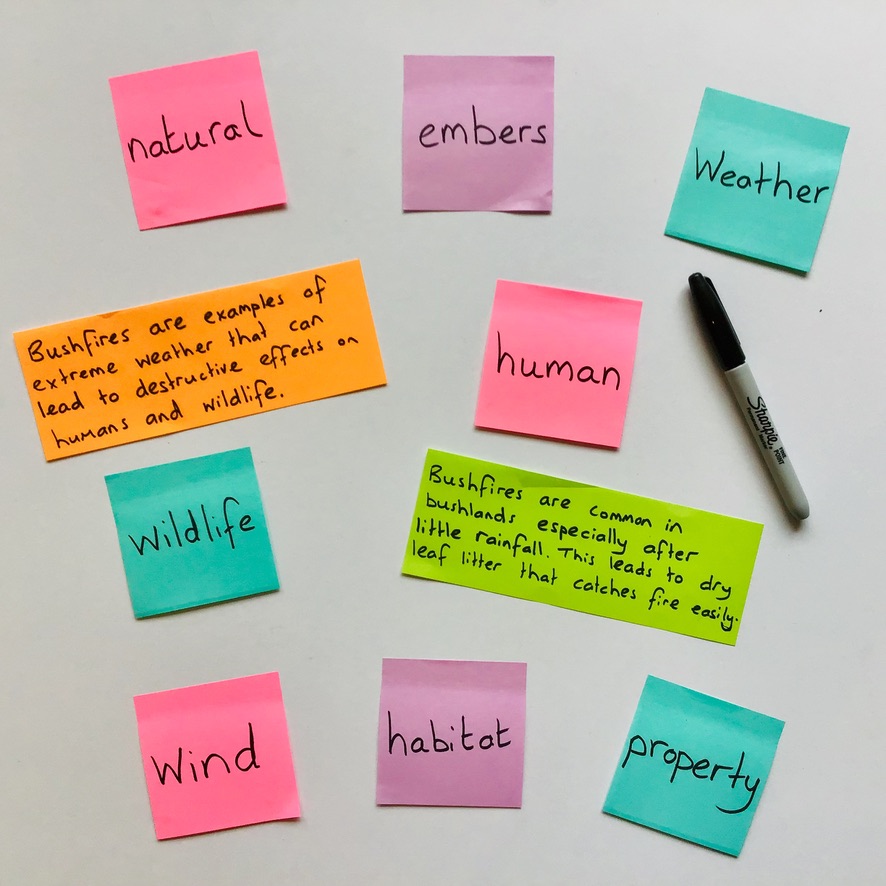 natural
embers
Weather
Bushfires are examples of
extreme weather that can
lead to destructive effects on
humans and wildlife.
human
Sharpie
FINE
POINT
wildlife
Bushfires are common in
bushlands especially after
little rainfall. This leads to dry
leaf litter that catches fire easily.
Wind
habitat
property